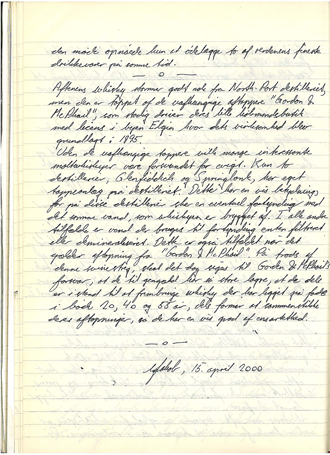 den måde opnåede hun at ødelægge to af verdens fineste
drikkevarer på samme tid.
— o —
Aftenens whisky stammer godt nok fra North Port destilleriet,
men den er tappet af de uafhængige aftappere "Gordon &
McPhail", som stadig driver deres lille købmandsbutik
med licens i byen Elgin hvor det virksomhed blev
grundlagt i 1895.
Uden de uafhængige tappere ville mange interessante
maltwhiskyer være forsvundet for evigt. Kun to
destillerier, Glenfiddich og Springbank, har eget
tappeanlæg på destilleriet. Dette har en vis betydning,
for på disse destillerier sker en eventuel fortynding med
det samme vand, som whiskyen er brygget af. I alle andre
tilfælde er vand der bruges til fortynding enten filtreret
eller demineraliseret. Dette er også tilfældet når det
gælder aftapning fra "Gordon & McPhail". På trods af
denne skal det dog siges til Gordon & McPhail's
forsvar, at de til gengæld har så store lagre, at de
er i stand til at frembringe whisky der har ligget på fade
i både 20, 40 og års, dels formår at sammenstille
deres aftapninger, så de har en vis grad af ensartethed.
— o —
15. april 2000